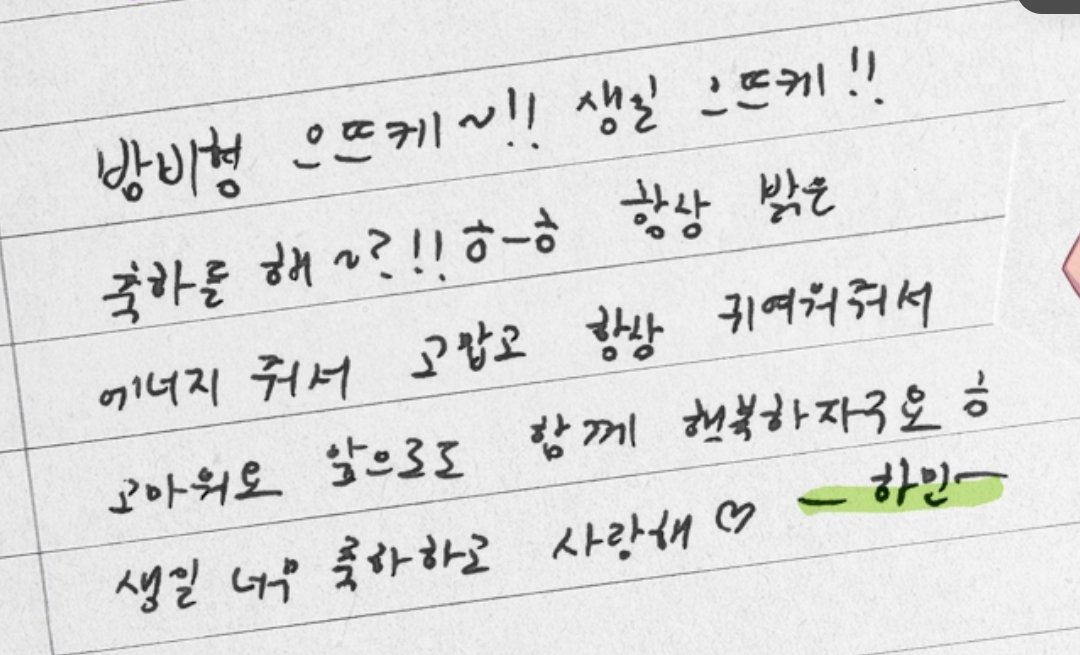 방비형 으뜨케~!! 생일 으뜨케!!
축하를 해~?!! ㅎ-ㅎ 항상 밝은
에너지 줘서 고맙고 항상 귀여워줘서
고마워요 앞으로도 함께 행복하자구요 ㅎ
생일 너무 축하하고 사랑해♡ - 하민 -